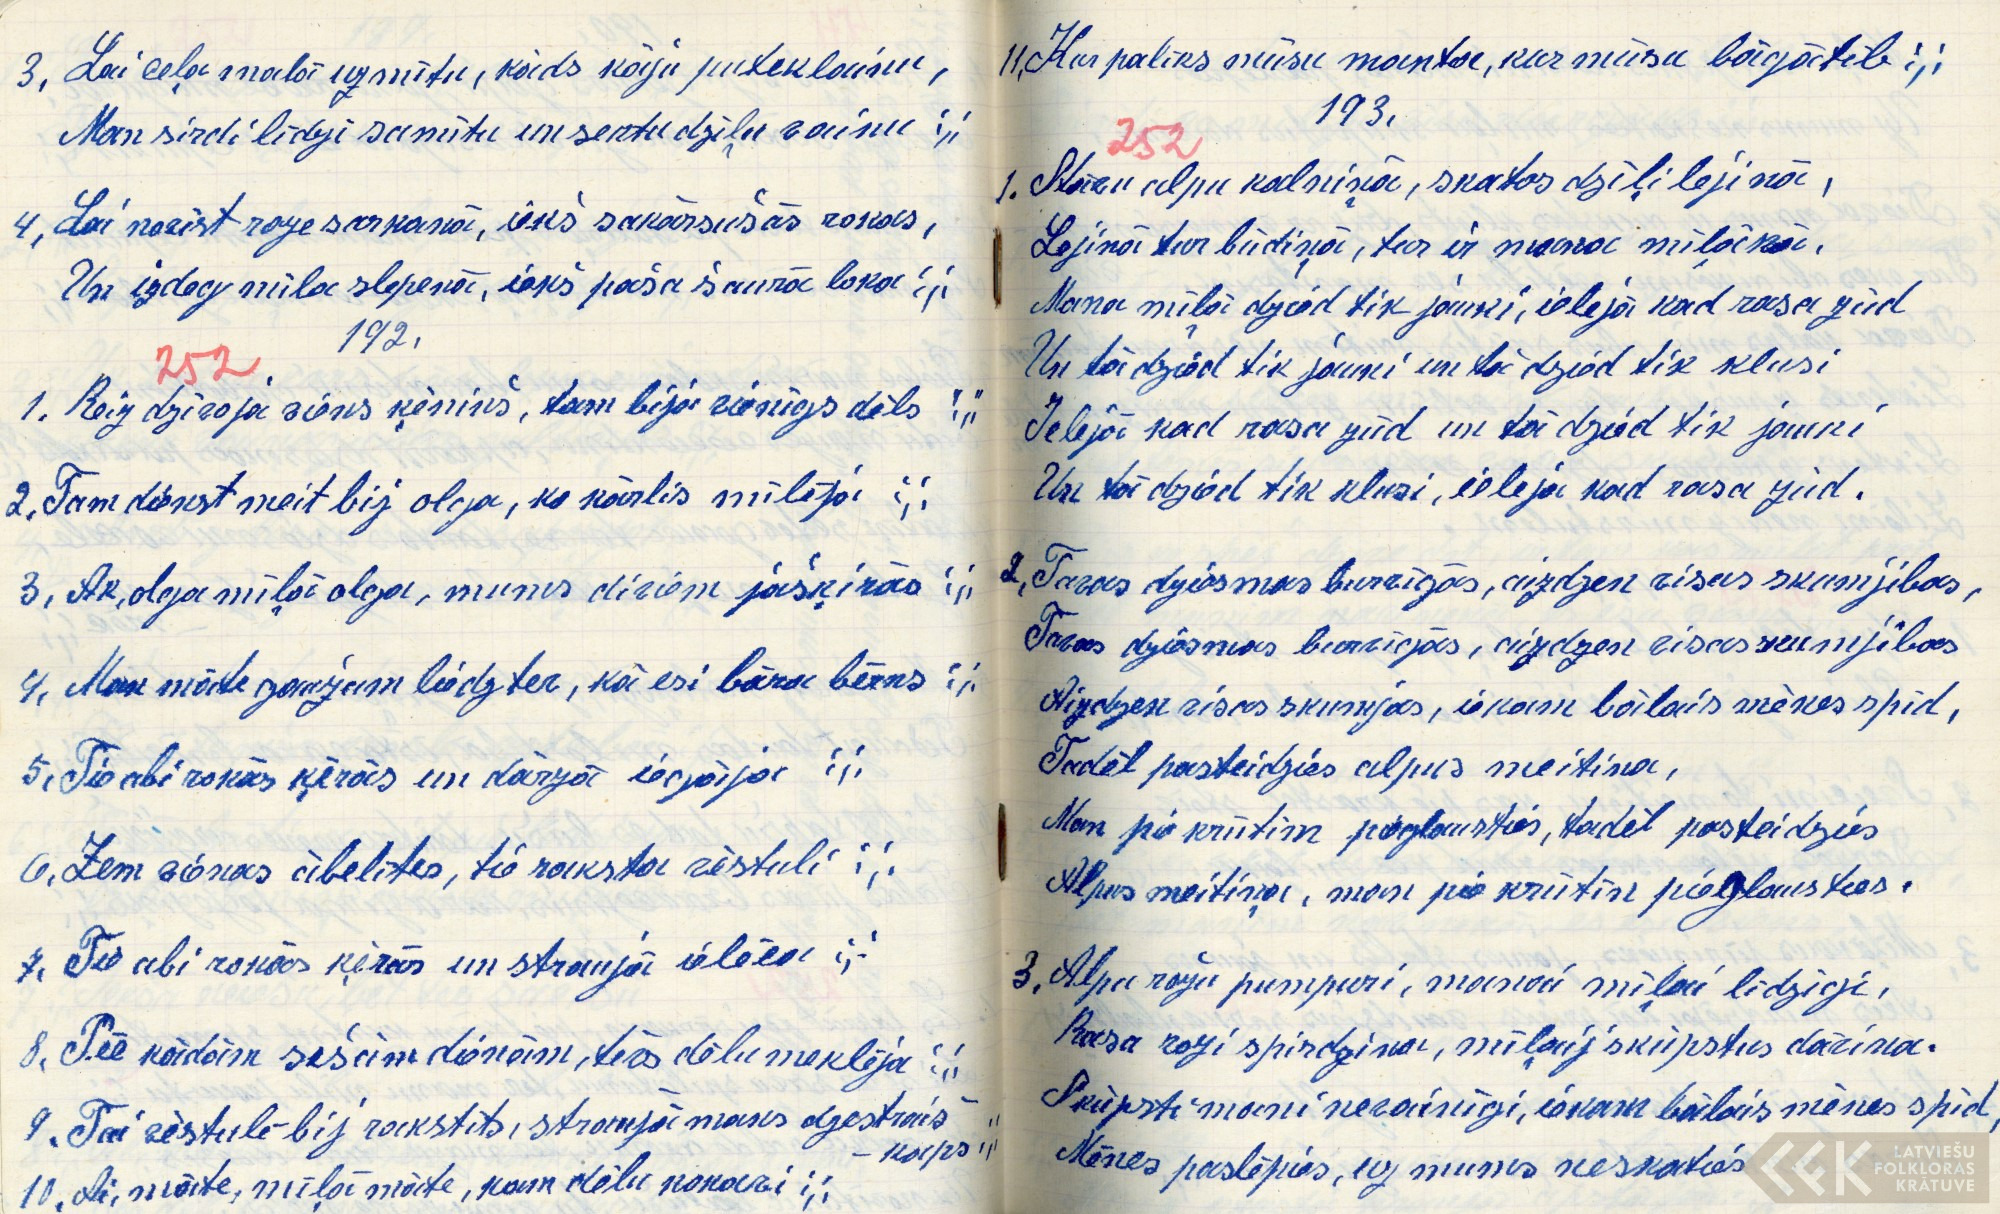 3, Lai ceļa malā uzmītu, kāds kāju puteklainu,
Man sirdi līdzi samītu un sertu dziļu vainu ;,;
4, Lai novīst roze sarkanā, iekš sakārsušās rokas,
Un izdeg mīla slepenā, iekš paša šaurā loka ;,;
192.
252
1. Reiz dzīvoja viens ķēniņš, tam bija vienīgs dēls ;,;
2. Tam dienstmeit bij olga, ko kārlis mīlēja ;,;
3, Ak, olga mīļā olga, mums diviem jāšķirās ;,;
4, Man māte gauzam liedz tev, kā esi bāra bērns ;,;
5, Tie abi rokās ķērās un dārzā iegāja ;,;
6, Zem vienas ābelītes, tie raksta vēstuli ;,;
7, Tie abi rokās ķērās un straujā ielēca ;,;
8, Pēc kādām sešām dienām, tēvs dēlu meklēja ;,;
9. Tai vēstulē bij rakstīts, straujā mans dzestrais
– kaps ;,;
10, Ai, māte, mīļā māte, kam dēlu nokavi ;,;
11, Kur paliks mūsu manta, kur mūsu bāgātib ;,;
193.
252
1. Stāvu alpu kalniņā, skatos dziļi lejiņā,
Lejiņā tur būdiņā, tur ir mana mīļākā.
Mana mīļā dzied tik jauki, ielejā kad rasa zūd
Un tā dzied tik jauki un tā dzied tik klusi
Ielejā kad rasa zūd un tā dzied tik jauki
Un tā dzied tik klusi, ielejā kad rasa zūd.
2, Tavas dziesmas burvīgās, aizdzen visas skumjības,
Tavas dziesmas burvīgās, aizdzen visas skumjības
Aizdzen visas skumjas, iekam bālais mēnes spīd,
Tadēl pasteidzies alpus meitiņa,
Man pie krūtīm pieglausties, tadēl pasteidzies
Alpus meitiņa, man pie krūtīm pieglausties.
3, Alpu rožu pumpuri, manai mīļai līdzīgi,
Rasa rozi spirdzina, mīļaij skūpstus dāvina.
Skūpsti mani nevainīgi, iekam bālais mēnes spīd,
Mēnes paslēpies, uz mums neskaties
LATVIEŠU
FOLKLORAS
KRĀTUVE